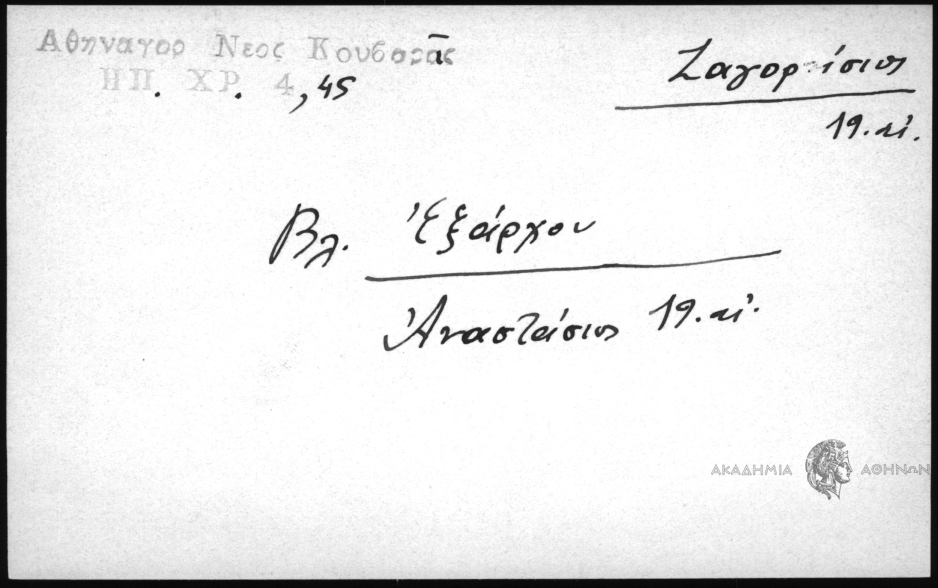 Αθηναγορ Νεος Κουβαρᾶς
ΗΠ. ΧΡ. 4, 45
Ζαγορήσιος
19. αἰ.
Βλ. Ἐξάρχου
Ἀναστάσιος 19. αἰ.
ΑΚΑΔΗΜΙΑ ΑΘΗΝΩΝ